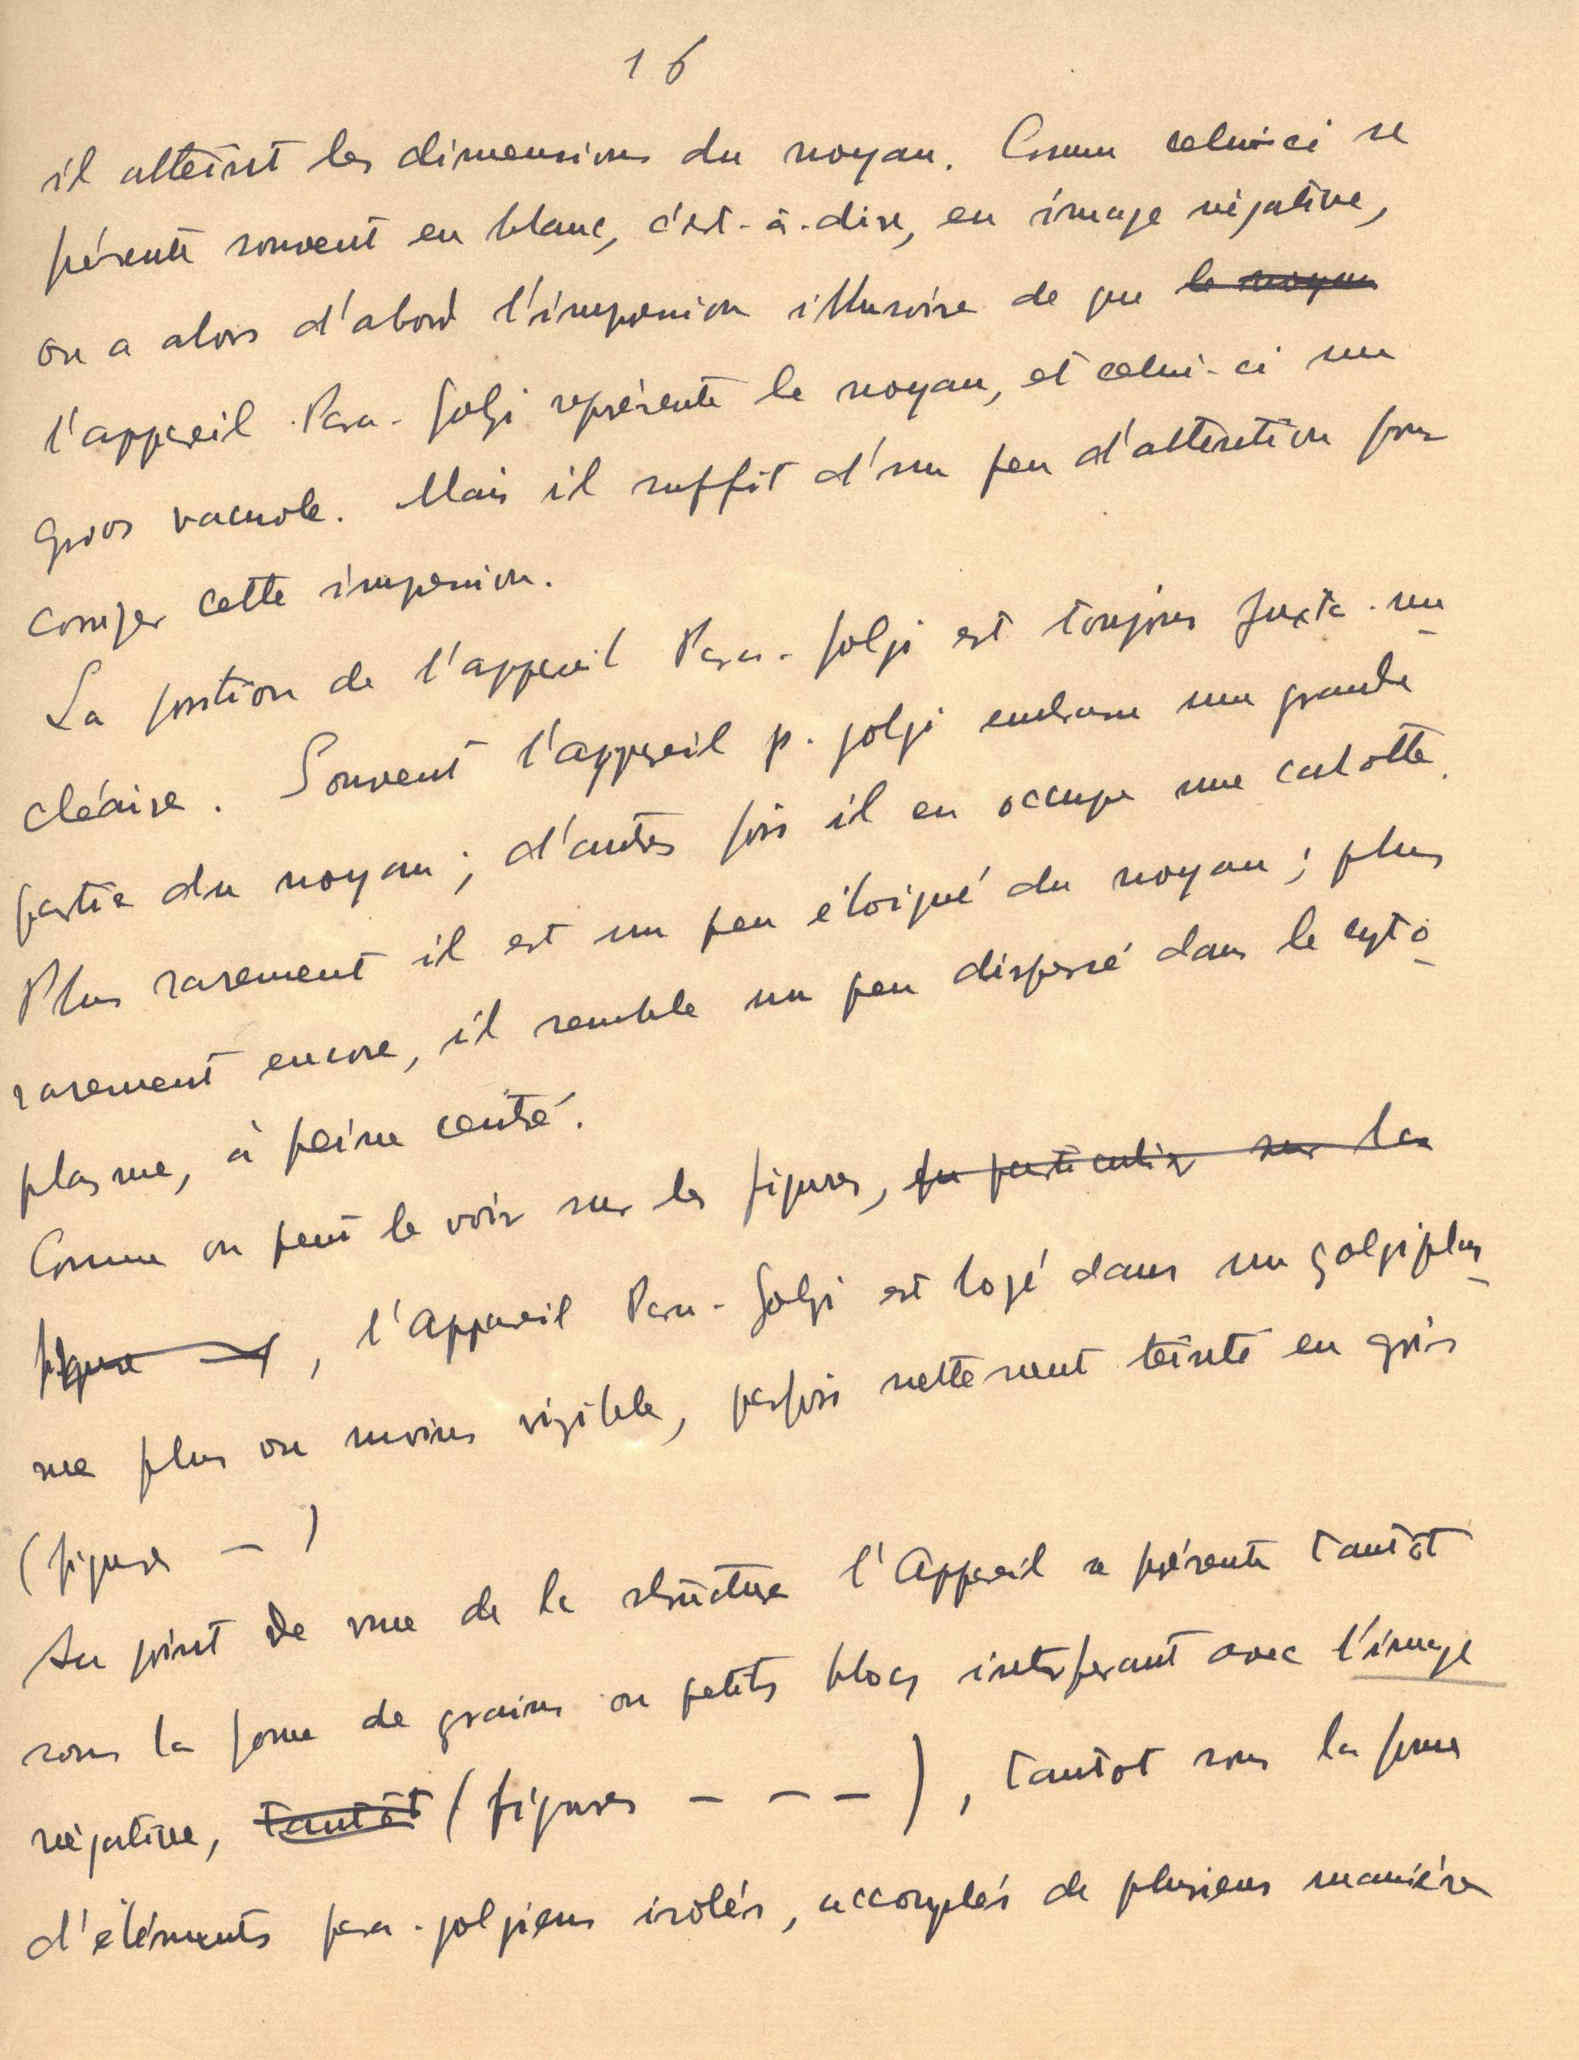 16
il atteint les dimensions du noyau. Comme celui-ci se
présente souvent en blanc, c'est-à-dire, en image négative,
on a alors d'abord l'impression illusoire de que le noyau
l'appareil Para-Golgi représente le noyau, et celui-ci une
gros vacuole. Mais il suffit d'un peu d'attention pour
corriger cette impression.
La position de l'appareil Para-Golgi est toujours juxta-nu
cléaire. Souvent l'appareil p. golgi embrasse une grande
partie du noyau; d'autres fois il en occupe une calotte.
Plus rarement il est un peu éloigné du noyau; plus
rarement encore, il semble un peu dispersé dans le cyto
plasme, à peine centré.
Comme on peut le voir sur les figures, en particulier sur la
figure, l'appareil Para-Golgi est logé dans un golgiplas
me plus ou moins vizible, parfois nettement teinté en gris
(figures - )
Au point de vue de la structure l'Appareil se présente tantôt
sous la forme de grains ou petits blocs interferant avec l'image
négative, tantôt (figures - - - ), tantot sous la forme
d'éléments para-golgiens isolés, accouplés de plusieurs manières